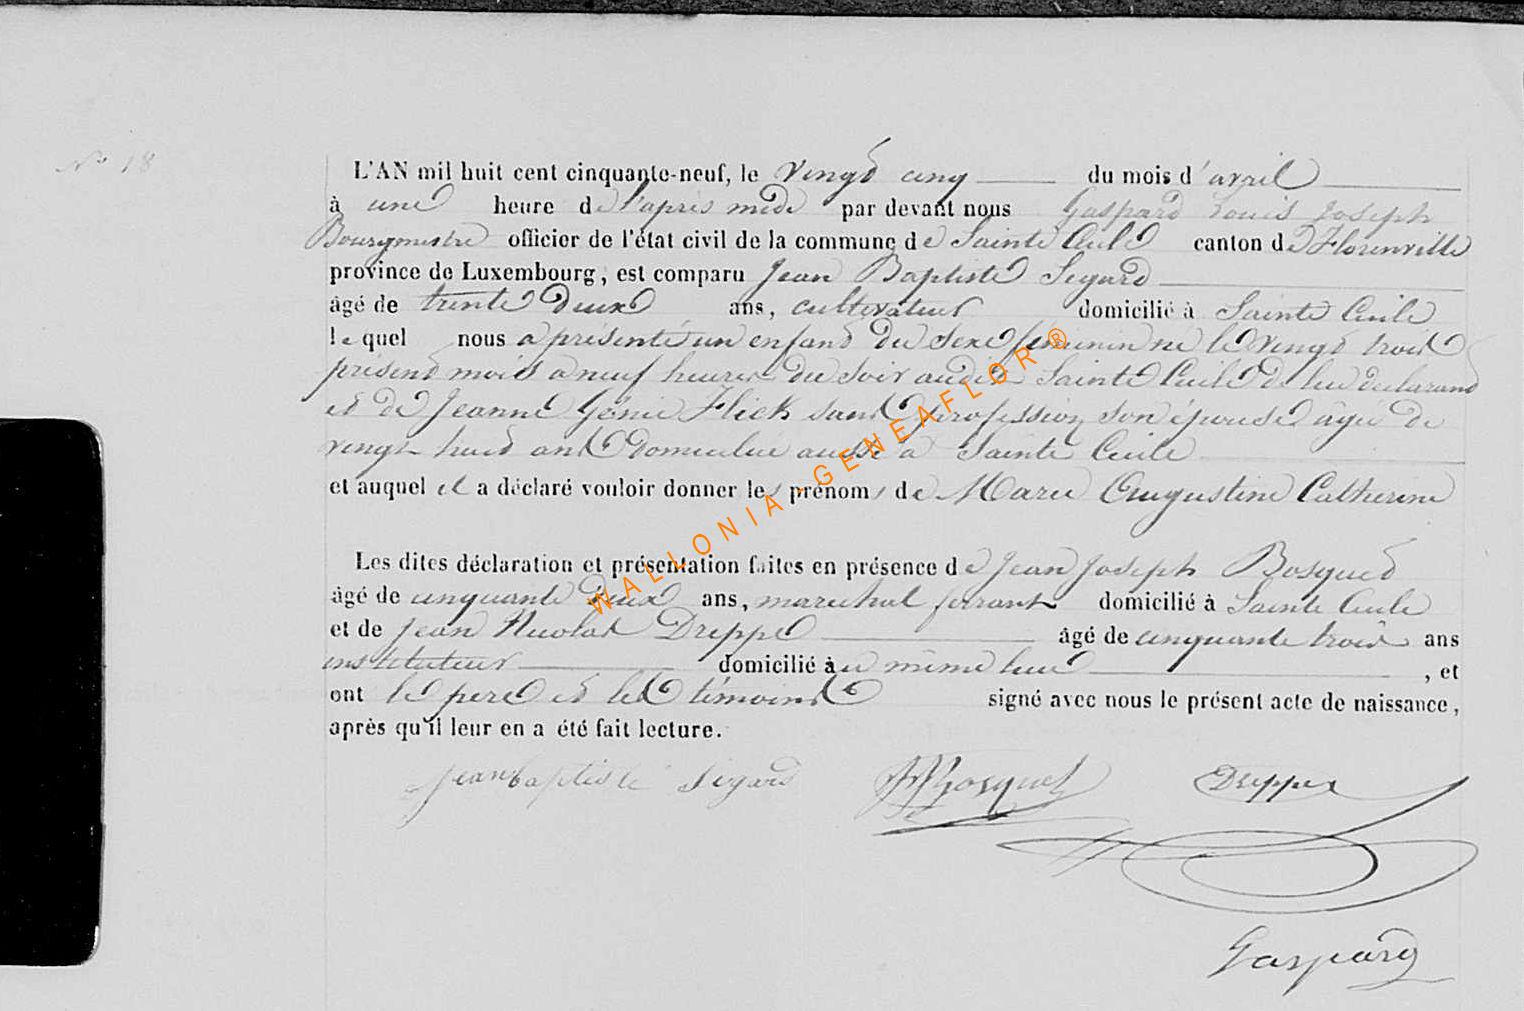 N° 18
L'AN mil huit cent cinquante-neuf, le vingt cinq du mois d'avril
à une heure de l'après midi par devant nous Gaspard Louis Joseph
Bourgmestre officier de l'état civil de la commune de Sainte Cécile canton de Florenville
province de Luxembourg, est comparu Jean Baptiste Sigard
âgé de trente deux ans, cultivateur domicilié à Sainte Cécile
lequel nous a présenté un enfant du sexe féminin né le vingt trois
présent mois à neuf heures du soir audit Sainte Cécile de lui déclarant
et de Jeanne Génie Flick sans profession son épouse âgée de
vingt huit ans domiciliée aussi à Sainte Cécile
et auquel il a déclaré vouloir donner les prénoms de Marie Augustine Catherine
Les dites déclaration et présentation faites en présence de Jean Joseph Bosquet
âgé de cinquante deux ans, maréchal ferrant domicilié à Sainte Cécile
et de Jean Nicolas Dreppe âgé de cinquante trois ans
instituteur domicilié au même lieu, et
ont le père et les témoins signé avec nous le présent acte de naissance,
après qu'il leur en a été fait lecture.
jean baptiste Sigard JJ Bosquet Dreppe
Gaspard
WALLONIA-GENEAFLOR®